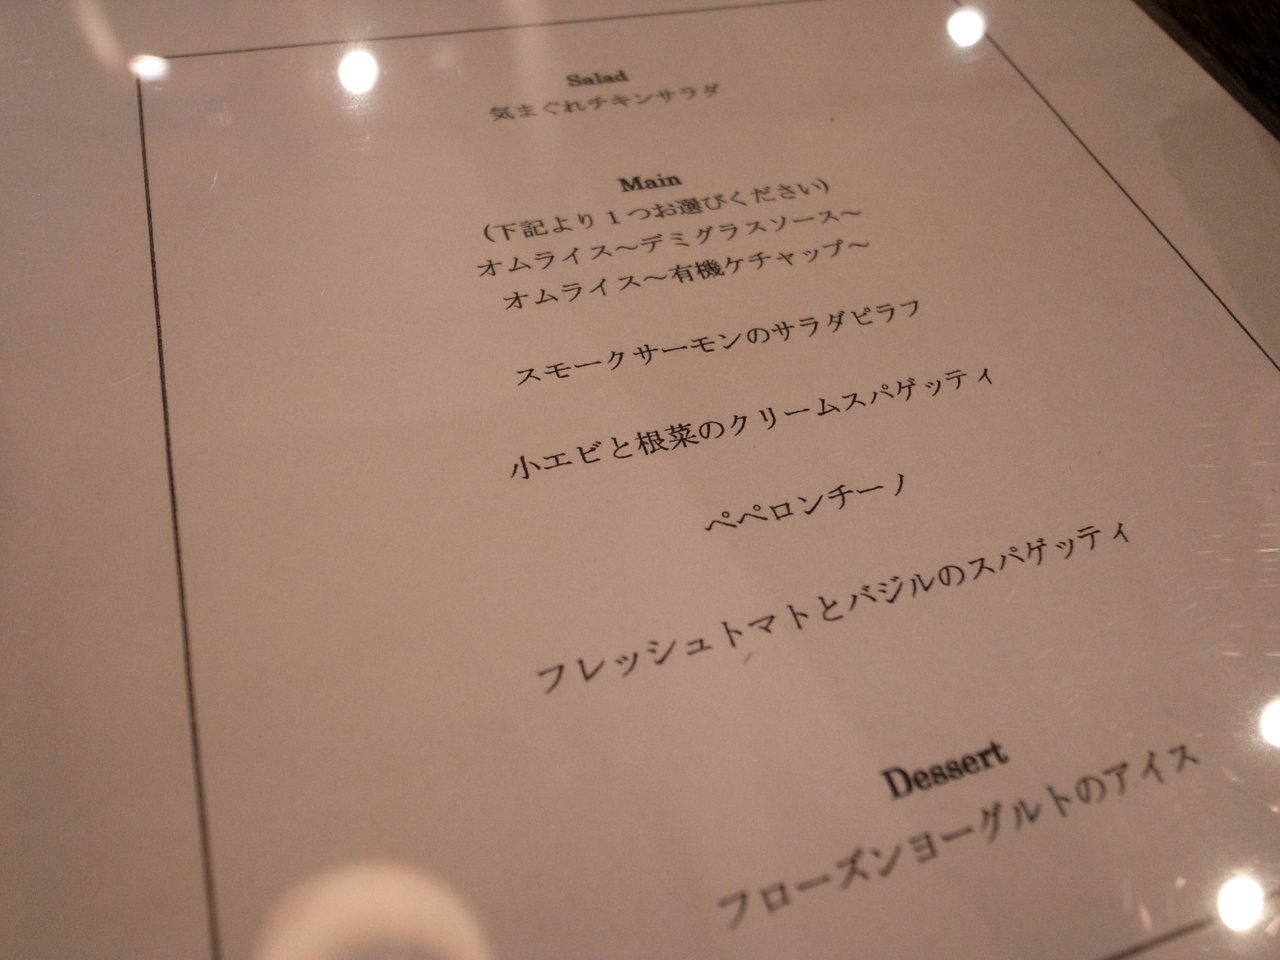 Salad
気まぐれチキンサラダ
Main
(下記より1つお選びください)
オムライス～デミグラスソース～
オムライス～有機ケチャップ～
スモークサーモンのサラダピラフ
小エビと根菜のクリームスパゲッティ
ペペロンチーノ
フレッシュトマトとバジルのスパゲッティ
Dessert
フローズンヨーグルトのアイス